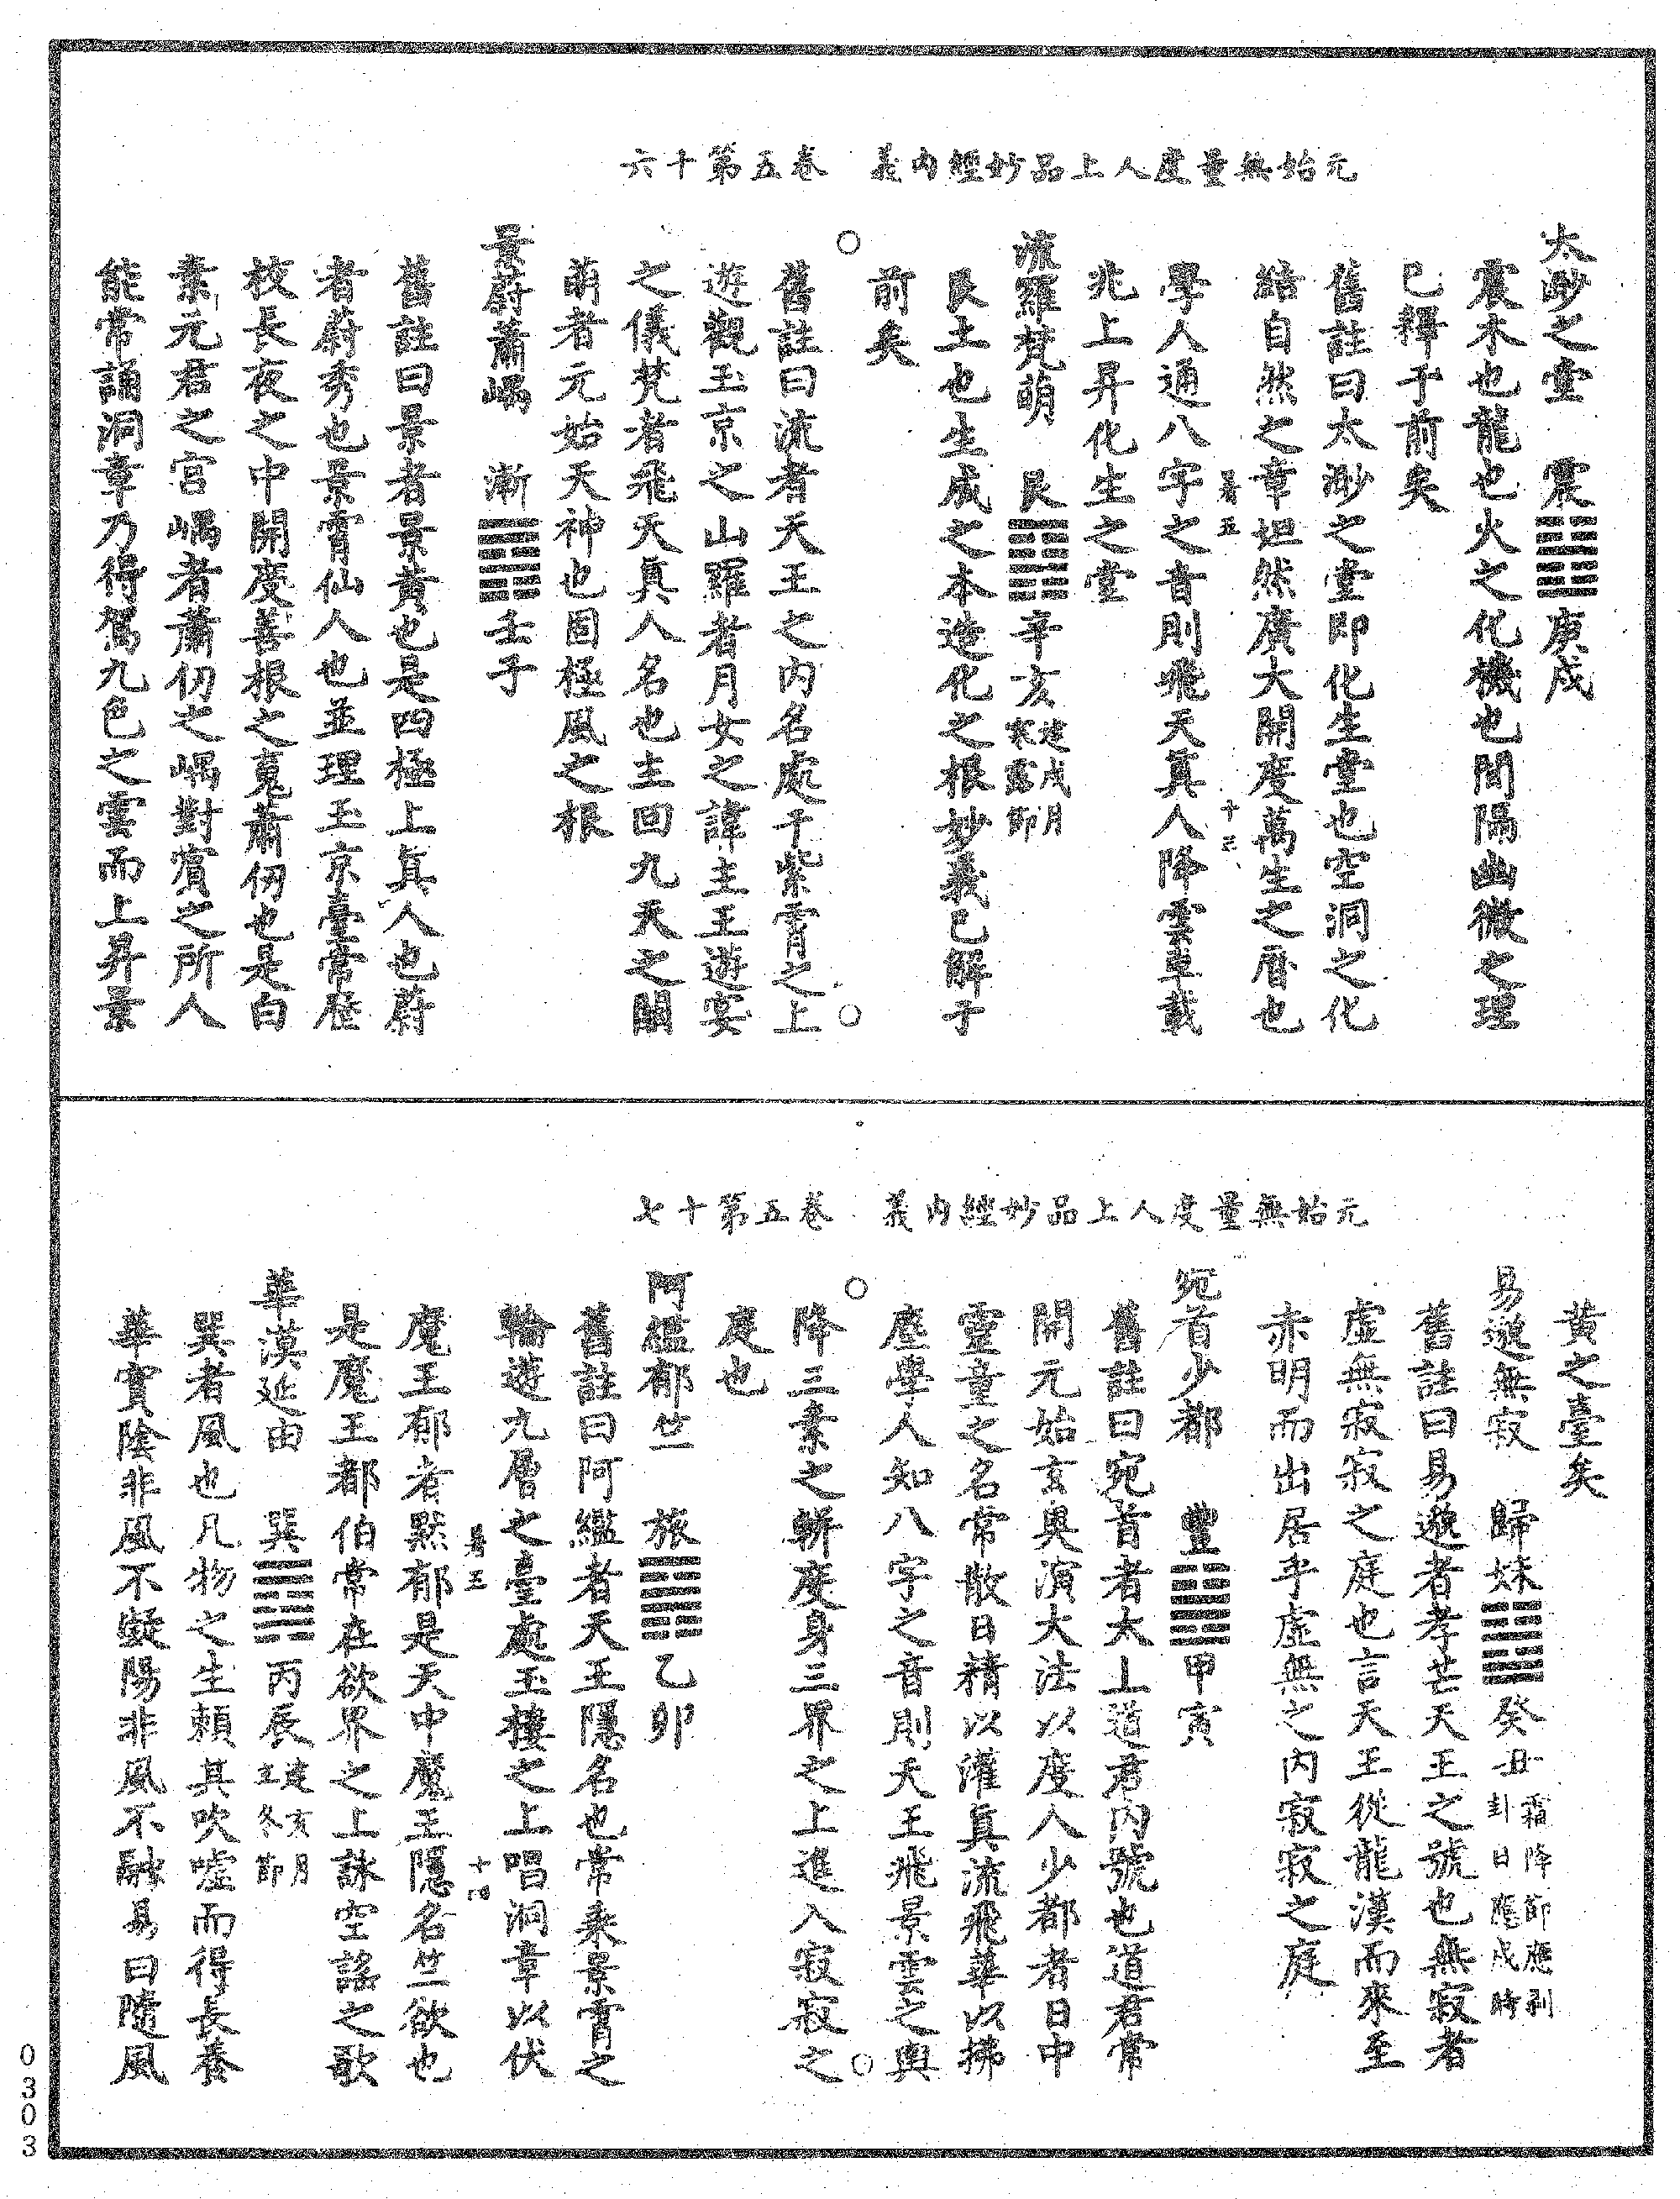 元始無量度人上品妙經內義　卷五第十六
太渺之堂　震䷲庚戌
震木也龍也火之化機也間隔幽微之理
已釋于前矣
舊註曰太渺之堂即化生堂也空洞之化
結自然之章坦然廣大開度萬生之曆也
學人通八字之音則飛天真人降雲輿載
兆上昇化生之堂
流羅梵萌　艮䷳辛亥建戌月寒露節
艮土也生成之本造化之根妙義已解于
前矣
舊註曰流者天王之內名處于紫霄之上
遊觀玉京之山羅者月女之諱主王遊宴
之儀梵者飛天真人名也主回九天之關
萌者元始天神也固極風之根
景蔚蕭嵎　漸䷴壬子
舊註曰景者景黃也是四極上真人也蔚
者蔚秀也景霄仙人也並理玉京臺常歷
校長夜之中開度善根之䰟蕭仞也是白
素元君之宮嵎者蕭仞之嵎對賓之所人
能常誦洞章乃得駕九色之雲而上昇景
元始無量度人上品妙經內義　卷五第十七
黃之臺矣
易邈無寂　歸妹䷵癸丑霜降節應剝卦日應戌時
舊註曰易邈者孝芒天王之號也無寂者
虛無寂寂之庭也言天王從龍漢而來至
赤明而出居乎虛無之內寂寂之庭
宛首少都　豐䷶甲寅
舊註曰宛首者太上道君內號也道君常
開元始玄奧演大法以度人少都者日中
靈童之名常散日精以灌真流飛華以拂
塵學人知八字之音則天王飛景雲之輿
降三素之軿度身三界之上進入寂寂之
庭也
阿䍚郁竺　旅䷷乙卯
舊註曰阿䍚者天王隱名也常乘景霄之
輪遊九層之臺處玉樓之上唱洞章以伏
魔王郁者默郁是天中魔王隱名竺欲也
是魔王都伯常在欲界之上詠空謠之歌
華漠延由　巽䷸丙辰建亥月立冬節
巽者風也凡物之生賴其吹噓而得長養
華實陰非風不凝陽非風不融易曰隨風
0303